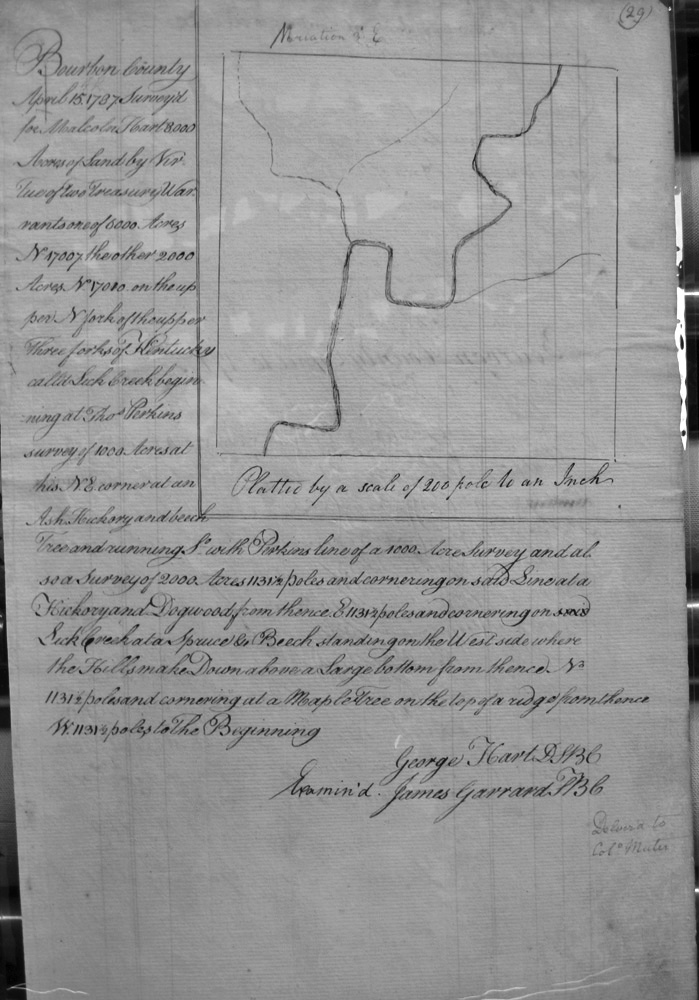 (29)
Variation 5 E
Bourbon County
April 15. 1787 Survey'd
for Malcoln Hart 8000
Acres of Land by Vir
tue of two Treasury War
rants one of 6000 Acres
No 17007 the other 2000
Acres No 17010. on the up
per N fork of the upper
Three forks of Kentucky
calld Sick Creek begin
ning at Thos Perkins
survey of 1000 Acres at
his N E corner at an
Ash Hickory and beech
Platted by a scale of 200 pole to an Inch
Tree and running So with Perkins line of a 1000 Acre Survey and al
so a Survey of 2000 Acres 1131½ poles and cornering on said Line at a
Hickory and Dogwood from thence E 1131½ poles and cornering on said
Lick Creek at a Spruce & Beech standing on the West side where
the Hills make Down above a Large bottom from thence No
1131½ poles and cornering at a Maple Tree on the top of a ridge from thence
W. 1131½ poles to the Beginning
George Hart D.S.B.C
Examin'd. James Garrard S B C
Deliver'd to
Colo Muter